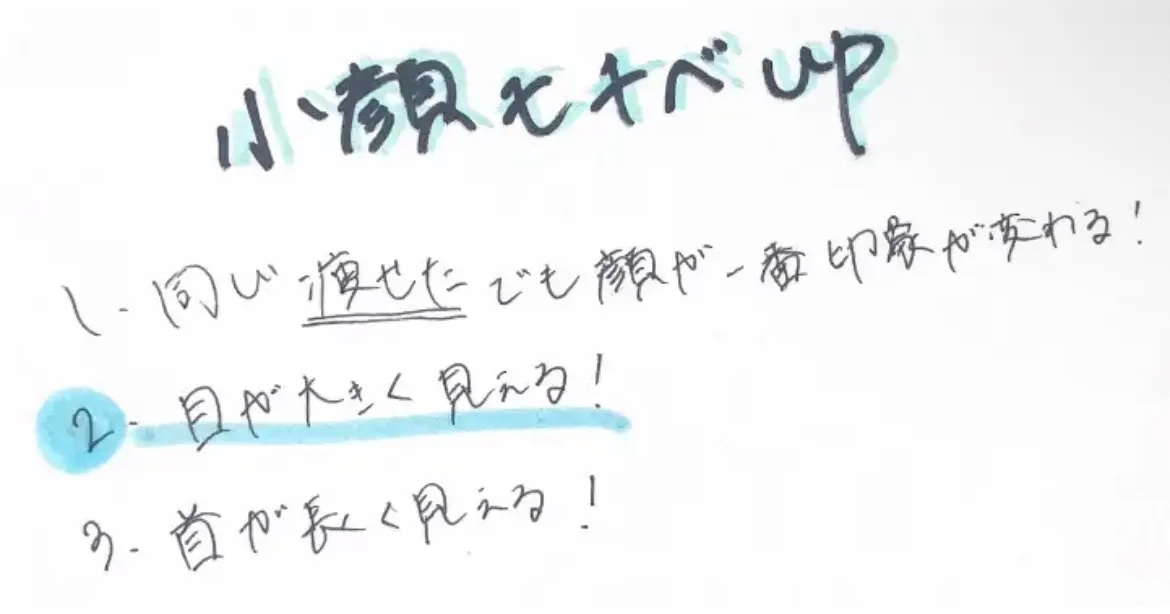 小顔モチベUP
1. 同じ痩せたでも顔が一番印象が変わる!
2. 目が大きく見える!
3. 首が長く見える!